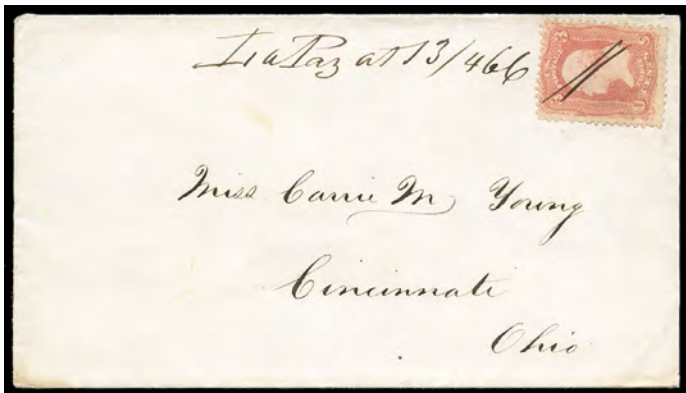 La Paz at 13/466
Miss Carrie M Young
Cincinnate
Ohio